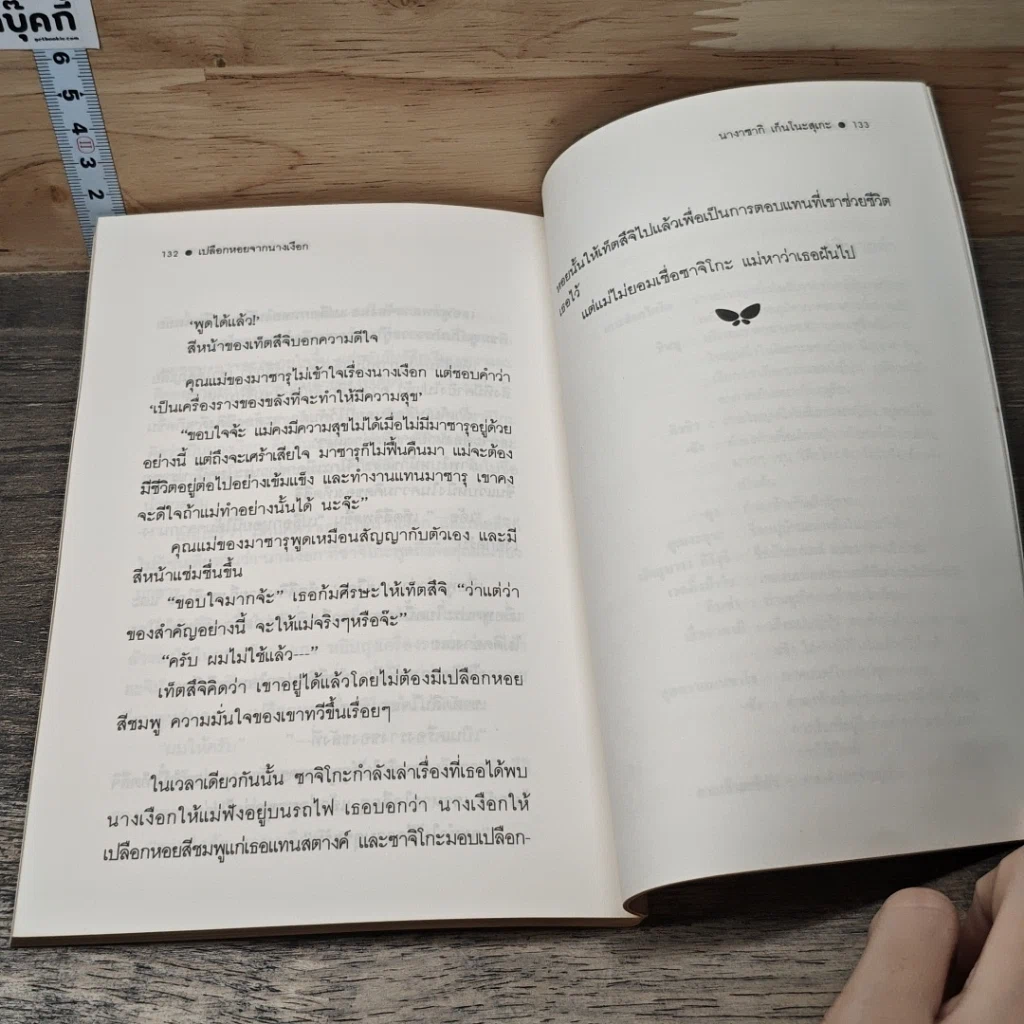 บุ๊คที
6
5
4
3
2
132 ● เปลือกหอยจากนางเงือก
‘พูดได้แล้ว!’
สีหน้าของเท็ตสึจิบอกความดีใจ
คุณแม่ของมาซารุไม่เข้าใจเรื่องนางเงือก แต่ชอบคำว่า
‘เป็นเครื่องรางของขลังที่จะทำให้มีความสุข’
“ขอบใจจ้ะ แม่คงมีความสุขไม่ได้เมื่อไม่มีมาซารุอยู่ด้วย
อย่างนี้ แต่ถึงจะเศร้าเสียใจ มาซารุก็ไม่ฟื้นคืนมา แม่จะต้อง
มีชีวิตอยู่ต่อไปอย่างเข้มแข็ง และทำงานแทนมาซารุ เขาคง
จะดีใจถ้าแม่ทำอย่างนั้นได้ นะจ๊ะ”
คุณแม่ของมาซารุพูดเหมือนสัญญากับตัวเอง และมี
สีหน้าแช่มชื่นขึ้น
“ขอบใจมากจ้ะ” เธอก้มศีรษะให้เท็ตสึจิ “ว่าแต่ว่า
ของสำคัญอย่างนี้ จะให้แม่จริงๆหรือจ๊ะ”
“ครับ ผมไม่ใช้แล้ว---”
เท็ตสึจิคิดว่า เขาอยู่ได้แล้วโดยไม่ต้องมีเปลือกหอย
สีชมพู ความมั่นใจของเขาทวีขึ้นเรื่อยๆ
ในเวลาเดียวกันนั้น ซาจิโกะกำลังเล่าเรื่องที่เธอได้พบ
นางเงือกให้แม่ฟังอยู่บนรถไฟ เธอบอกว่า นางเงือกให้
เปลือกหอยสีชมพูแก่เธอแทนสตางค์ และซาจิโกะมอบเปลือก-
นางาซากิ เก็นโนะสุเกะ ● 133
หอยนั้นให้เท็ตสึจิไปแล้วเพื่อเป็นการตอบแทนที่เขาช่วยชีวิต
เธอไว้
แต่แม่ไม่ยอมเชื่อซาจิโกะ แม่หาว่าเธอฝันไป